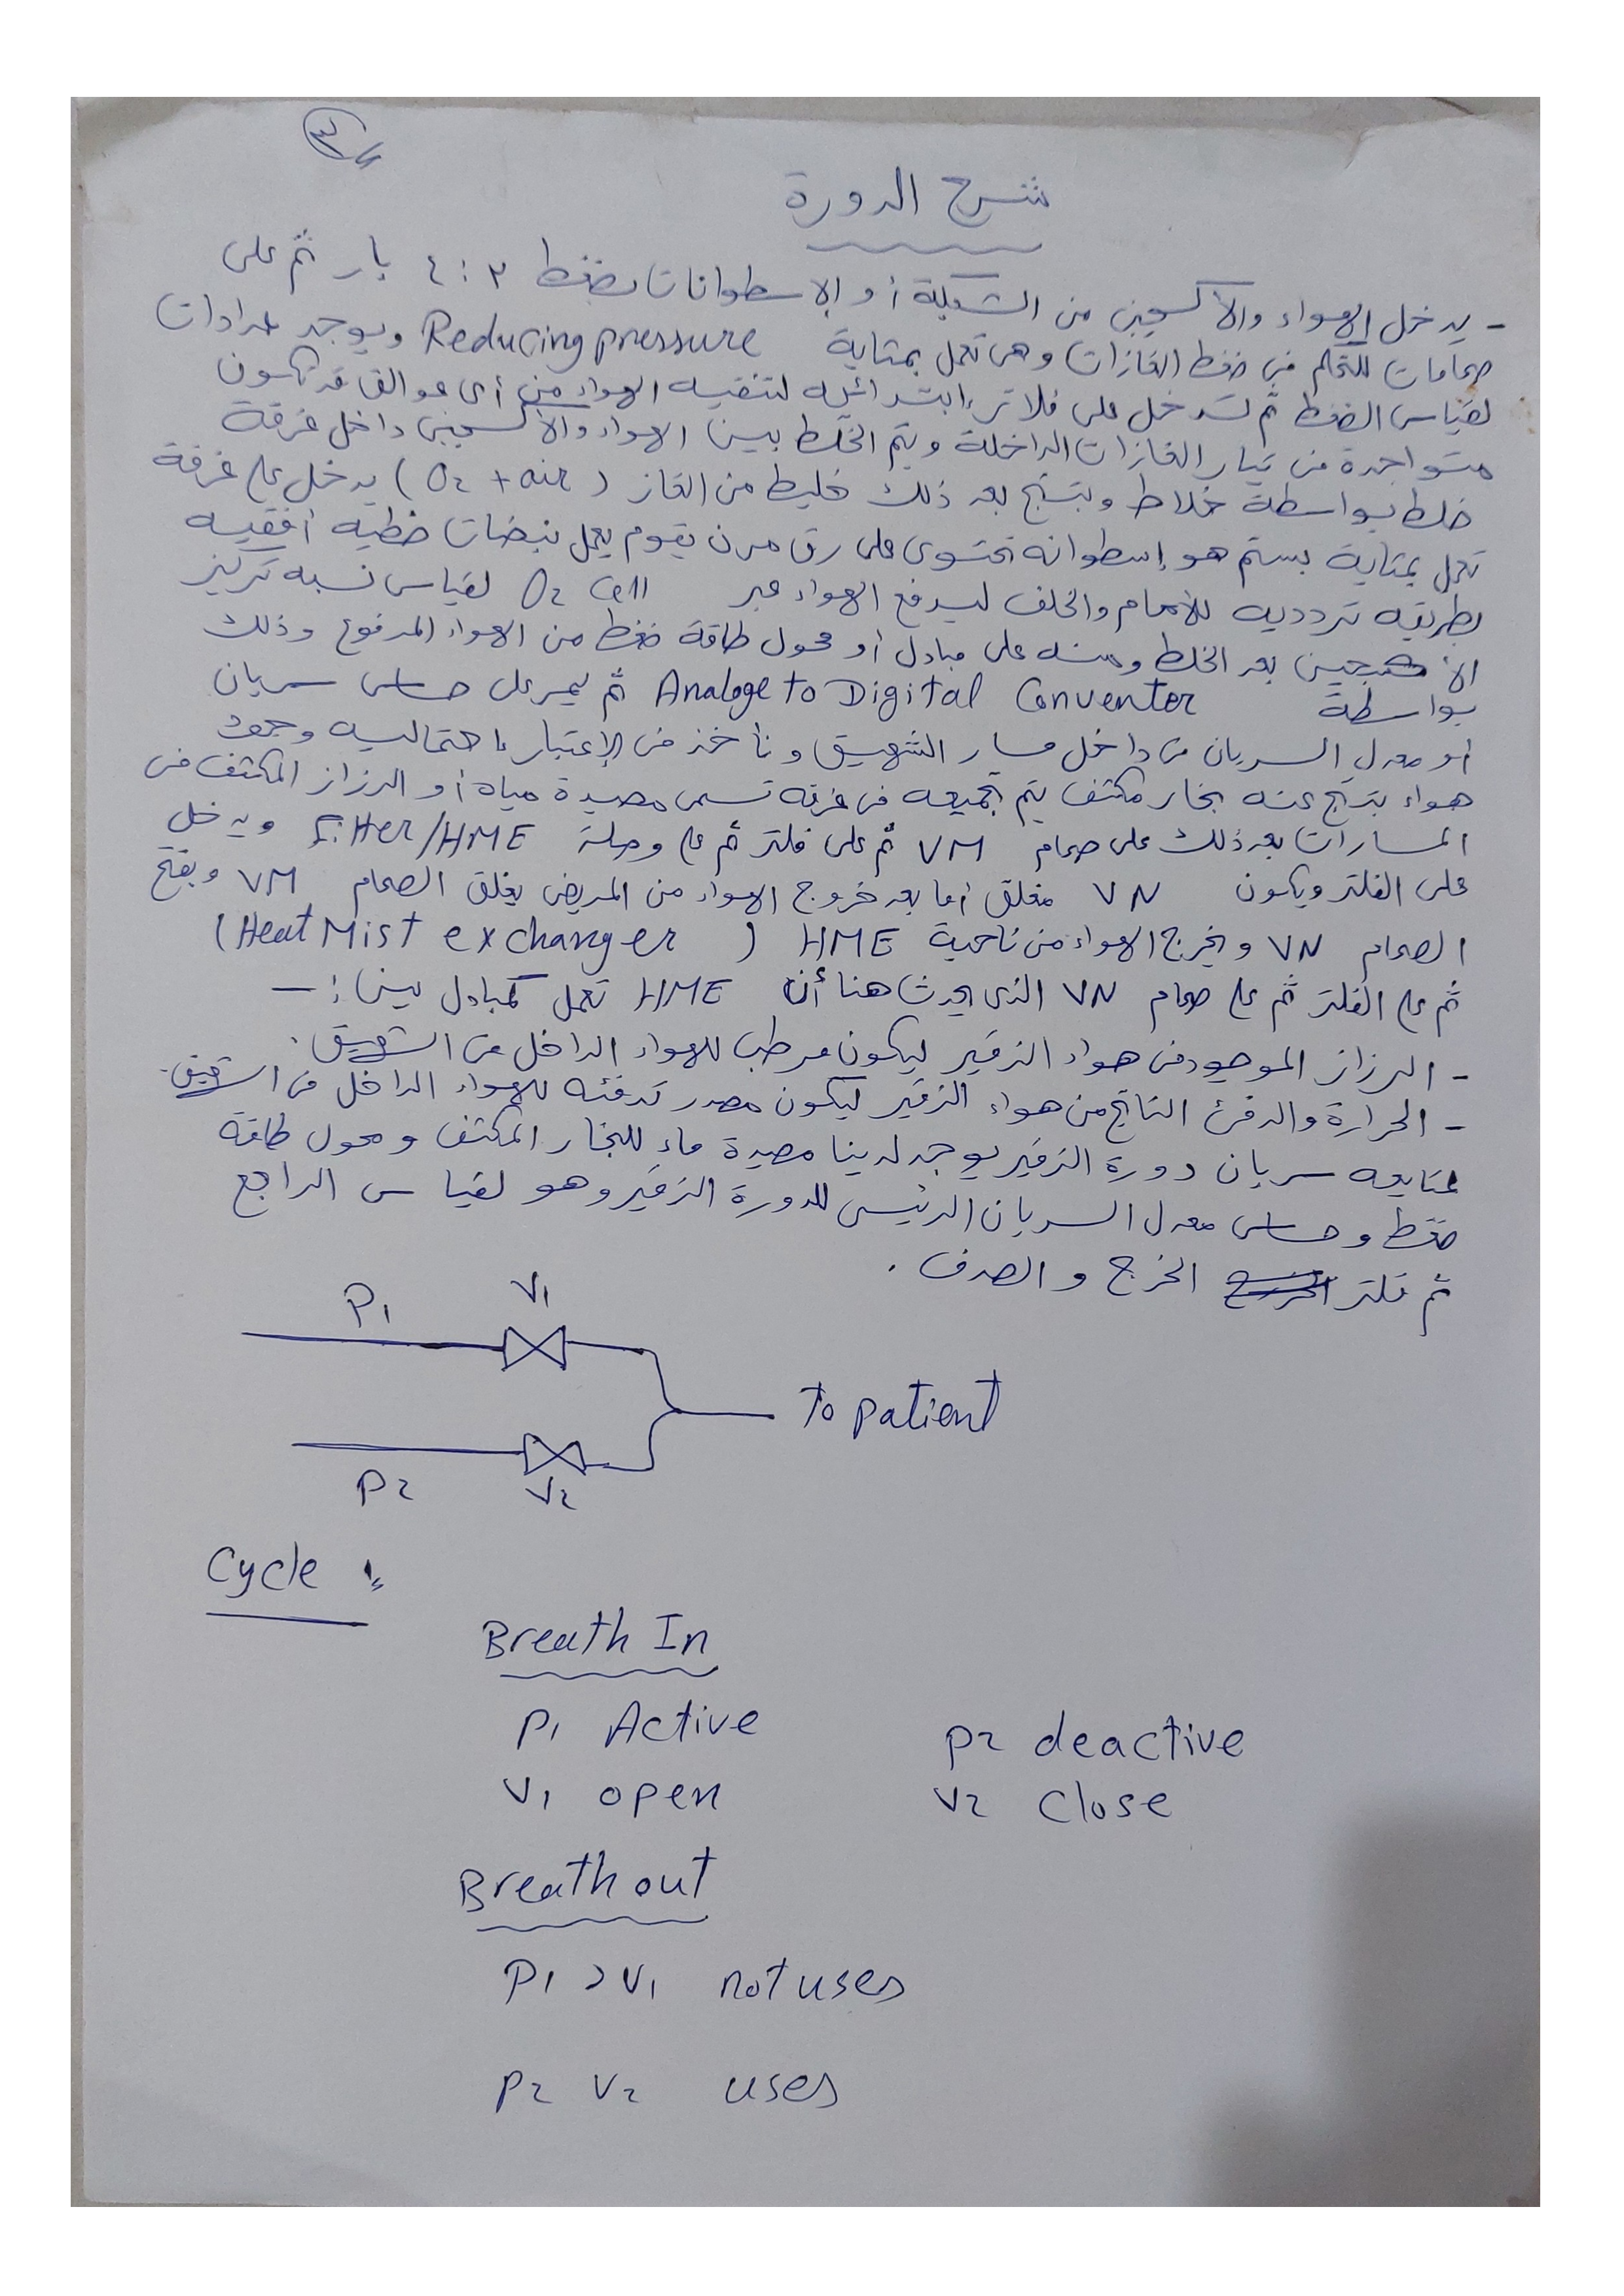 ٣
شرح الدورة
- يدخل الهواء والاكسجين من الشبكة أو الإسطوانات بضغط ٣ : ٤ بار ثم على
صمامات للتحكم فى ضغط الغازات وهى تعمل بمثابة Reducing pressure ويوجد عدادات
لقياس الضغط ثم تدخل على فلاتر إبتدائيه لتنقيه الهواء من أى عوالق قد تكون
متواجدة فى تيار الغازات الداخلة ويتم الخلط بين الهواء والأكسجين داخل غرفة
خلط بواسطة خلاط وينتج بعد ذلك خليط من الغاز (O2 + air) يدخل على غرفة
تعمل بمثابة بستم هو إسطوانه تحتوى على رق مرن يقوم بعمل نبضات خطيه أفقيه
بطريقه تردديه للأمام والخلف ليدفع الهواء عبر O2 Cell لقياس نسبه تركيز
الأكسجين بعد الخلط ومنه على مبادل أو محول طاقة ضغط من الهواء المدفوع وذلك
بواسطة Analoge to Digital Conventer ثم يمر على حساس سريان
أو معدل السريان من داخل مسار الشهيق ونأخذ فى الإعتبار احتماليه وجود
هواء ينتج عنه بخار مكثف يتم تجميعه فى غرفه تسمى مصيدة مياة أو الرزاز المكثف فى
المسارات بعد ذلك على صمام VM ثم على فلتر ثم على وصلة Filter/HME ويدخل
على الفلتر ويكون VN مغلق أما بعد خروج الهواء من المريض يغلق الصمام VM ويفتح
الصمام VN ويخرج الهواء من ناحية HME (Heat Mist exchanger)
ثم على الفلتر ثم على صمام VN الذى يحدث هنا أن HME تعمل كمبادل بين :-
- الرزاز الموجود فى هواء الزفير ليكون مرطب للهواء الداخل فى الشهيق.
- الحرارة والدفئ الناتج من هواء الزفير ليكون مصدر تدفئه للهواء الداخل فى الشهيق.
بمتابعه سريان دورة الزفير يوجد لدينا مصيدة ماء للبخار المكثف ومحول طاقه
ضغط وحساس معدل السريان الرئيسى للدورة الزفير وهو لقياس الراجع
ثم فلتر الخرج والصرف.
P1 V1
To patient
P2 V2
Cycle :
Breath In
P1 Active P2 deactive
V1 open V2 Close
Breath out
P1 > V1 not uses
P2 V2 uses